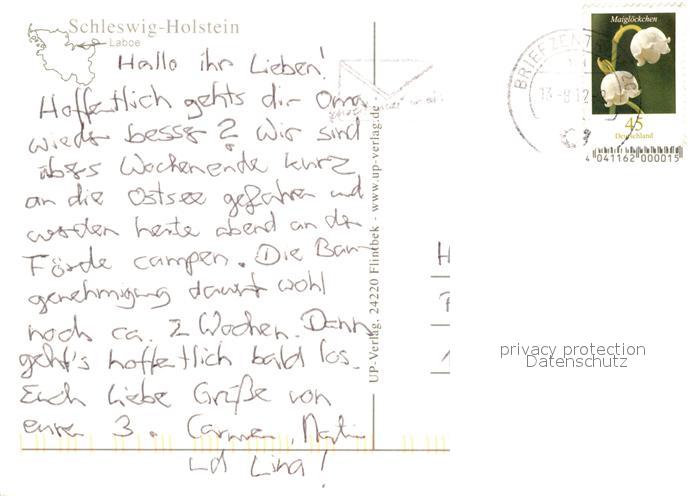 Schleswig-Holstein
Laboe
Hallo ihr Lieben!
Hoffentlich gehts dir Oma
wieder besser? Wir sind
übers Wochenende kurz
an die Ostsee gefahren und
werden heute abend an der
Förde campen. Die Bau-
genehmigung dauert wohl
noch ca. 2 Wochen. Dann
geht's hoffentlich bald los.
Euch liebe Grüße von
euren 3. Carmen, Martin
und Lina!
UP-Verlag, 24220 Flintbek - www.up-verlag.de
BRIEFZENTRUM
Maiglöckchen
45
Deutschland
4 041162 000015
privacy protection
Datenschutz